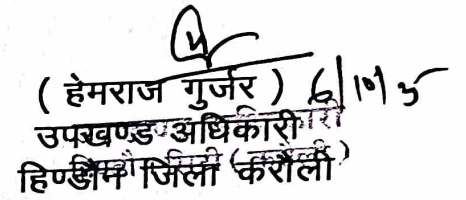 ( हेमराज गुर्जर ) 6/10/5
उपखण्ड अधिकारी
हिण्डौन जिला करौली